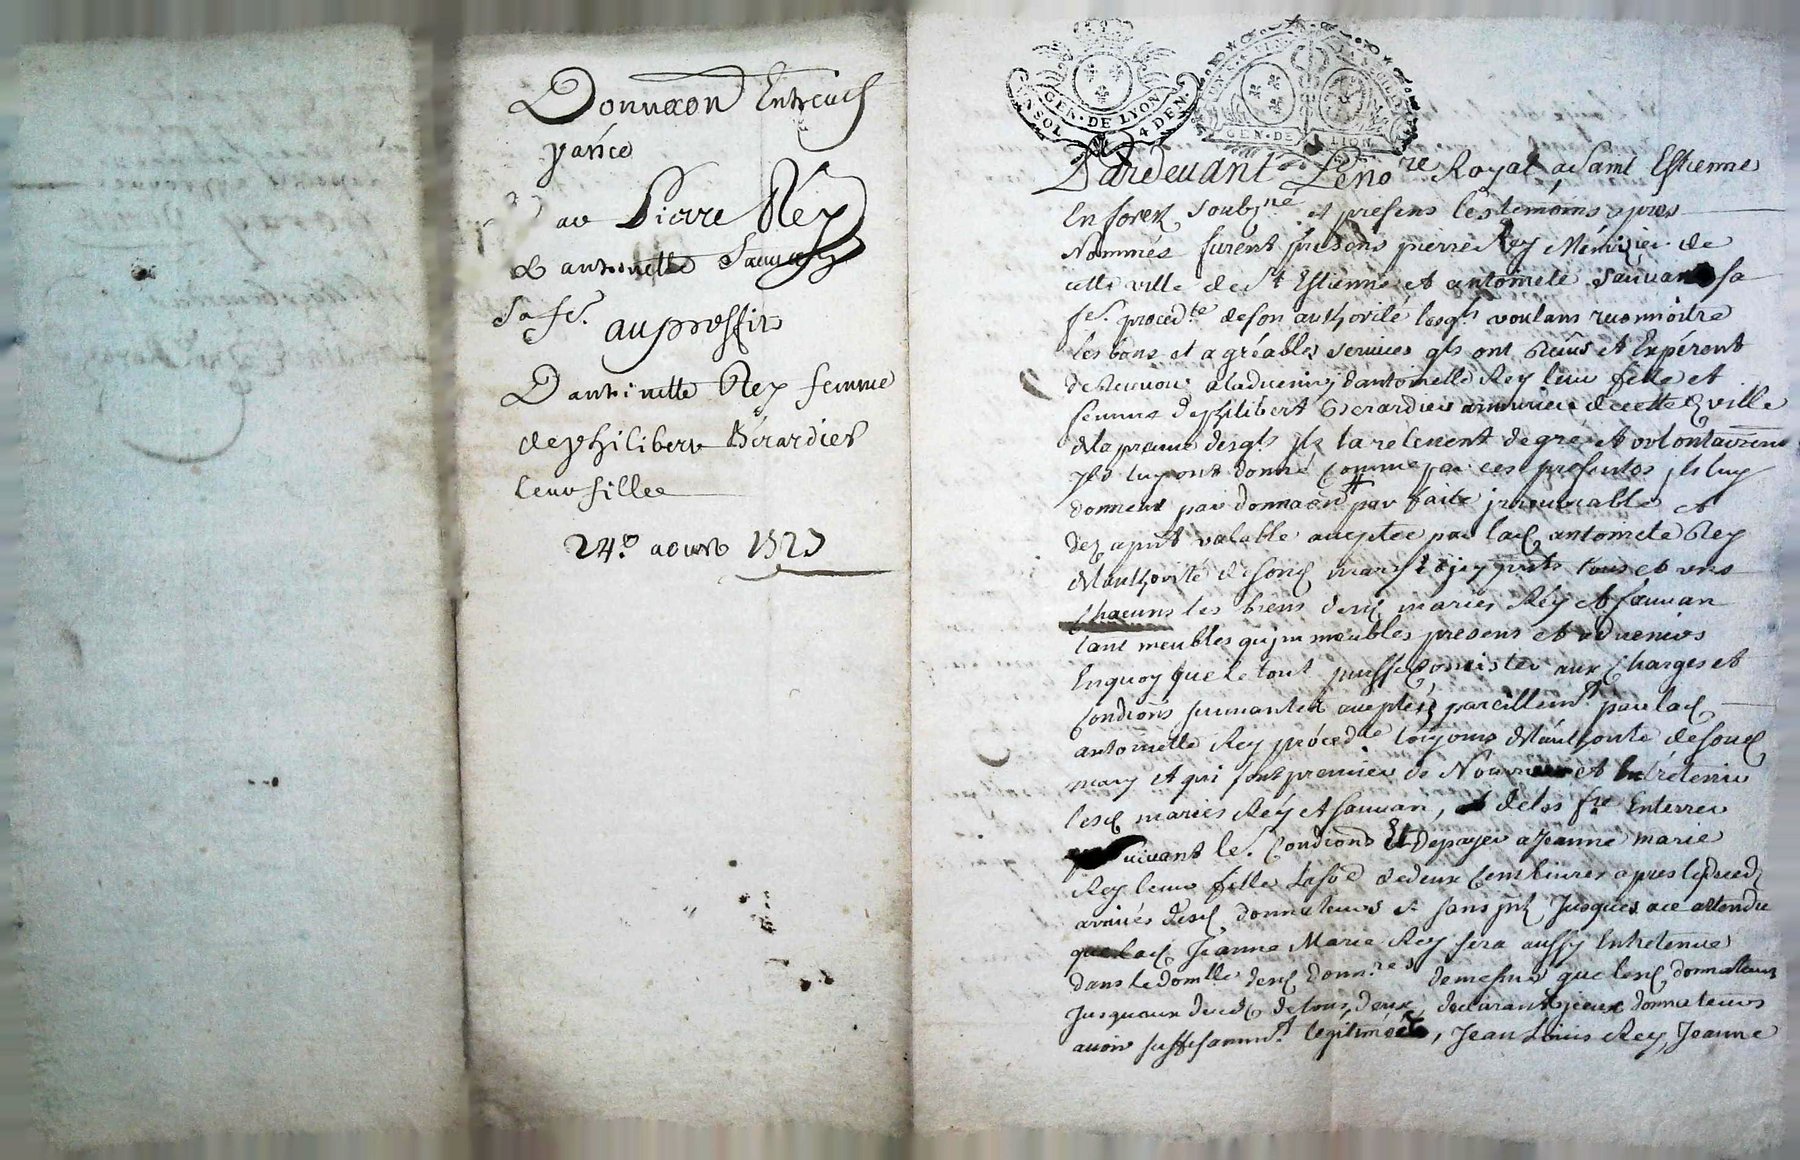 Donnaon Entreuifs
par Pierre Rey
& antoinette Sauuan
Sa fe. au proffit
D'antoinette Rey femme
de philibert Berardier
leur fille
24.e aoust 1723
GEN. DE LYON
SOL 4 DEN.
GEN. DE LION
Pardeuant Le no.re Royal a Saint Estienne
En forez soubz.ne et presens les temoins apres
Nommés furent presens pierre Rey Menuizier de
cette ville de St Estienne et antoinete Sauuan sa
fe. proced.te de son authorité lesqls voulans reconnoitre
les bons et agréables seruices qls ont Receus et Espérent
de Receuoir a laduenir d'antoinette Rey leur fille et
femme de philibert Berardier armurier de cette d ville
de la preuue desqls ils la releuent de gré et volontairem
Ils luy ont donné comme par ces presentes ils luy
donnent par donnaon pur faite irreuocable et
dez a pnt valable acceptée par lad antoinete Rey
de lauthorité de sond mary icy pnts tous et uns
chacuns les biens desd mariés Rey et Sauuan
tant meubles qu'immeubles presens et aduenirs
En quoy que le tout puisse consister aux charges et
Condions suiuantes acceptées pareillem.t par lad
antoinette Rey proced.te toujours de lauthorité de soud
mary et qui sont premier de Nourrir et Entretenir
lesd mariés Rey et Sauuan, de les f.re Enterrer
suiuant le. Condions Et de payer a Jeanne marie
Rey leur fille la so.e de deux Cent liures apres le deced
arriués desd donnateurs et sans jnt Jusques a ce attendu
que lad Jeanne Marie Rey sera aussy Entretenue
dans le domlle desd donn.res de mesme que lesd donnateurs
Jusquaux deced de tous deux, declarant jceux donnateurs
auoir suffisamm.t legitimée, Jean Louis Rey, Jeanne